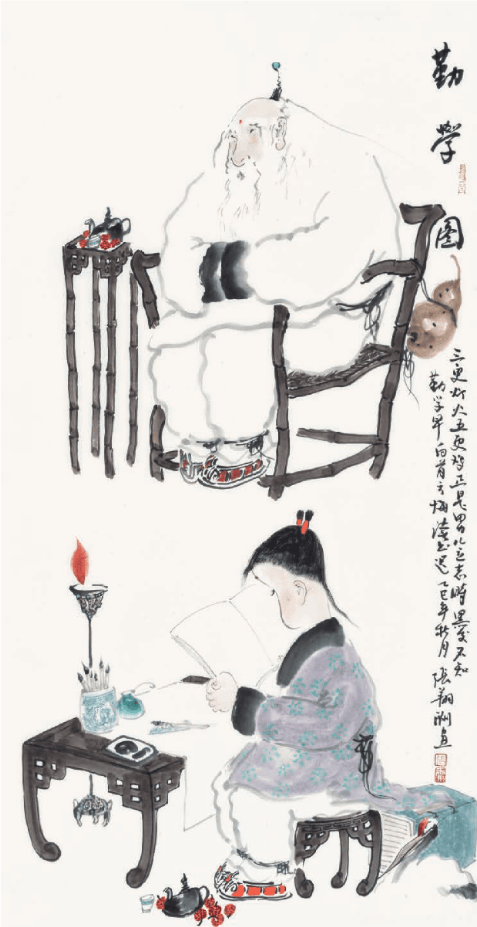 勤学图
三更灯火五更鸡正是男儿立志時黑发不知
勤学早白首方悔读书迟乙巳年秋月张翔洲画